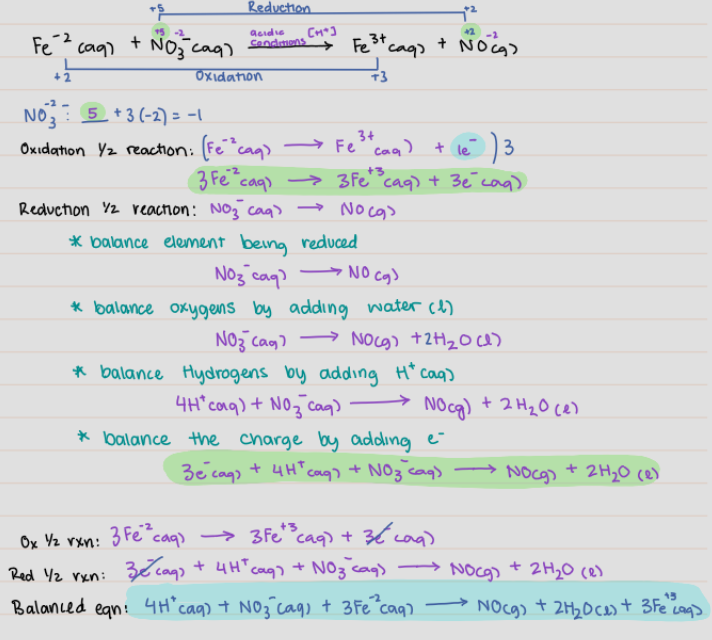 +5 Reduction +2
+5 -2 acidic [H⁺] +2 -2
Fe⁻² (aq) + NO₃⁻ (aq) conditions ⟶ Fe³⁺ (aq) + NO (g)
+2 Oxidation +3
NO₃⁻²⁻ : 5 + 3(-2) = -1
Oxidation ½ reaction: (Fe⁻² (aq) ⟶ Fe³⁺ (aq) + 1e⁻) 3
3Fe⁻² (aq) ⟶ 3Fe⁺³ (aq) + 3e⁻ (aq)
Reduction ½ reaction: NO₃⁻ (aq) ⟶ NO (g)
* balance element being reduced
NO₃⁻ (aq) ⟶ NO (g)
* balance oxygens by adding water (l)
NO₃⁻ (aq) ⟶ NO(g) + 2H₂O (l)
* balance Hydrogens by adding H⁺ (aq)
4H⁺ (aq) + NO₃⁻ (aq) ⟶ NO(g) + 2H₂O (l)
* balance the charge by adding e⁻
3e⁻ (aq) + 4H⁺ (aq) + NO₃⁻ (aq) ⟶ NO(g) + 2H₂O (l)
Ox ½ rxn: 3Fe⁻² (aq) ⟶ 3Fe⁺³ (aq) + 3e⁻ (aq)
Red ½ rxn: 3e⁻ (aq) + 4H⁺ (aq) + NO₃⁻ (aq) ⟶ NO(g) + 2H₂O (l)
Balanced eqn: 4H⁺ (aq) + NO₃⁻ (aq) + 3Fe⁻² (aq) ⟶ NO(g) + 2H₂O (l) + 3Fe⁺³ (aq)